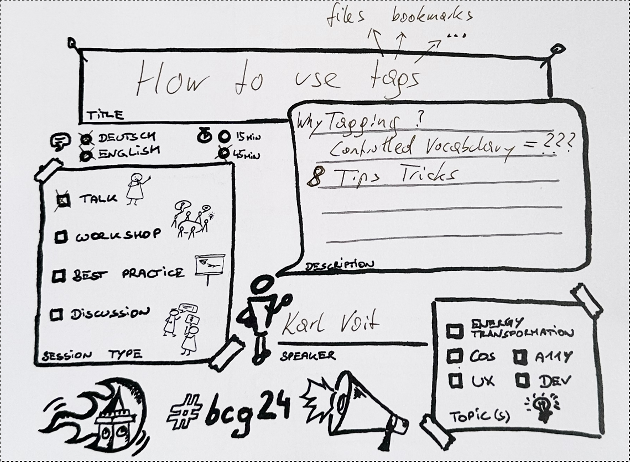 files bookmarks
...
How to use tags
TITLE
DEUTSCH
ENGLISH
15 MIN
45 MIN
Why Tagging ?
Controlled Vocabulary = ???
8 Tips Tricks
DESCRIPTION
TALK
WORKSHOP
BEST PRACTICE
DISCUSSION
SESSION TYPE
Karl Voit
SPEAKER
ENERGY
TRANSFORMATION
COS A11Y
UX DEV
TOPIC(S)
#bcg24